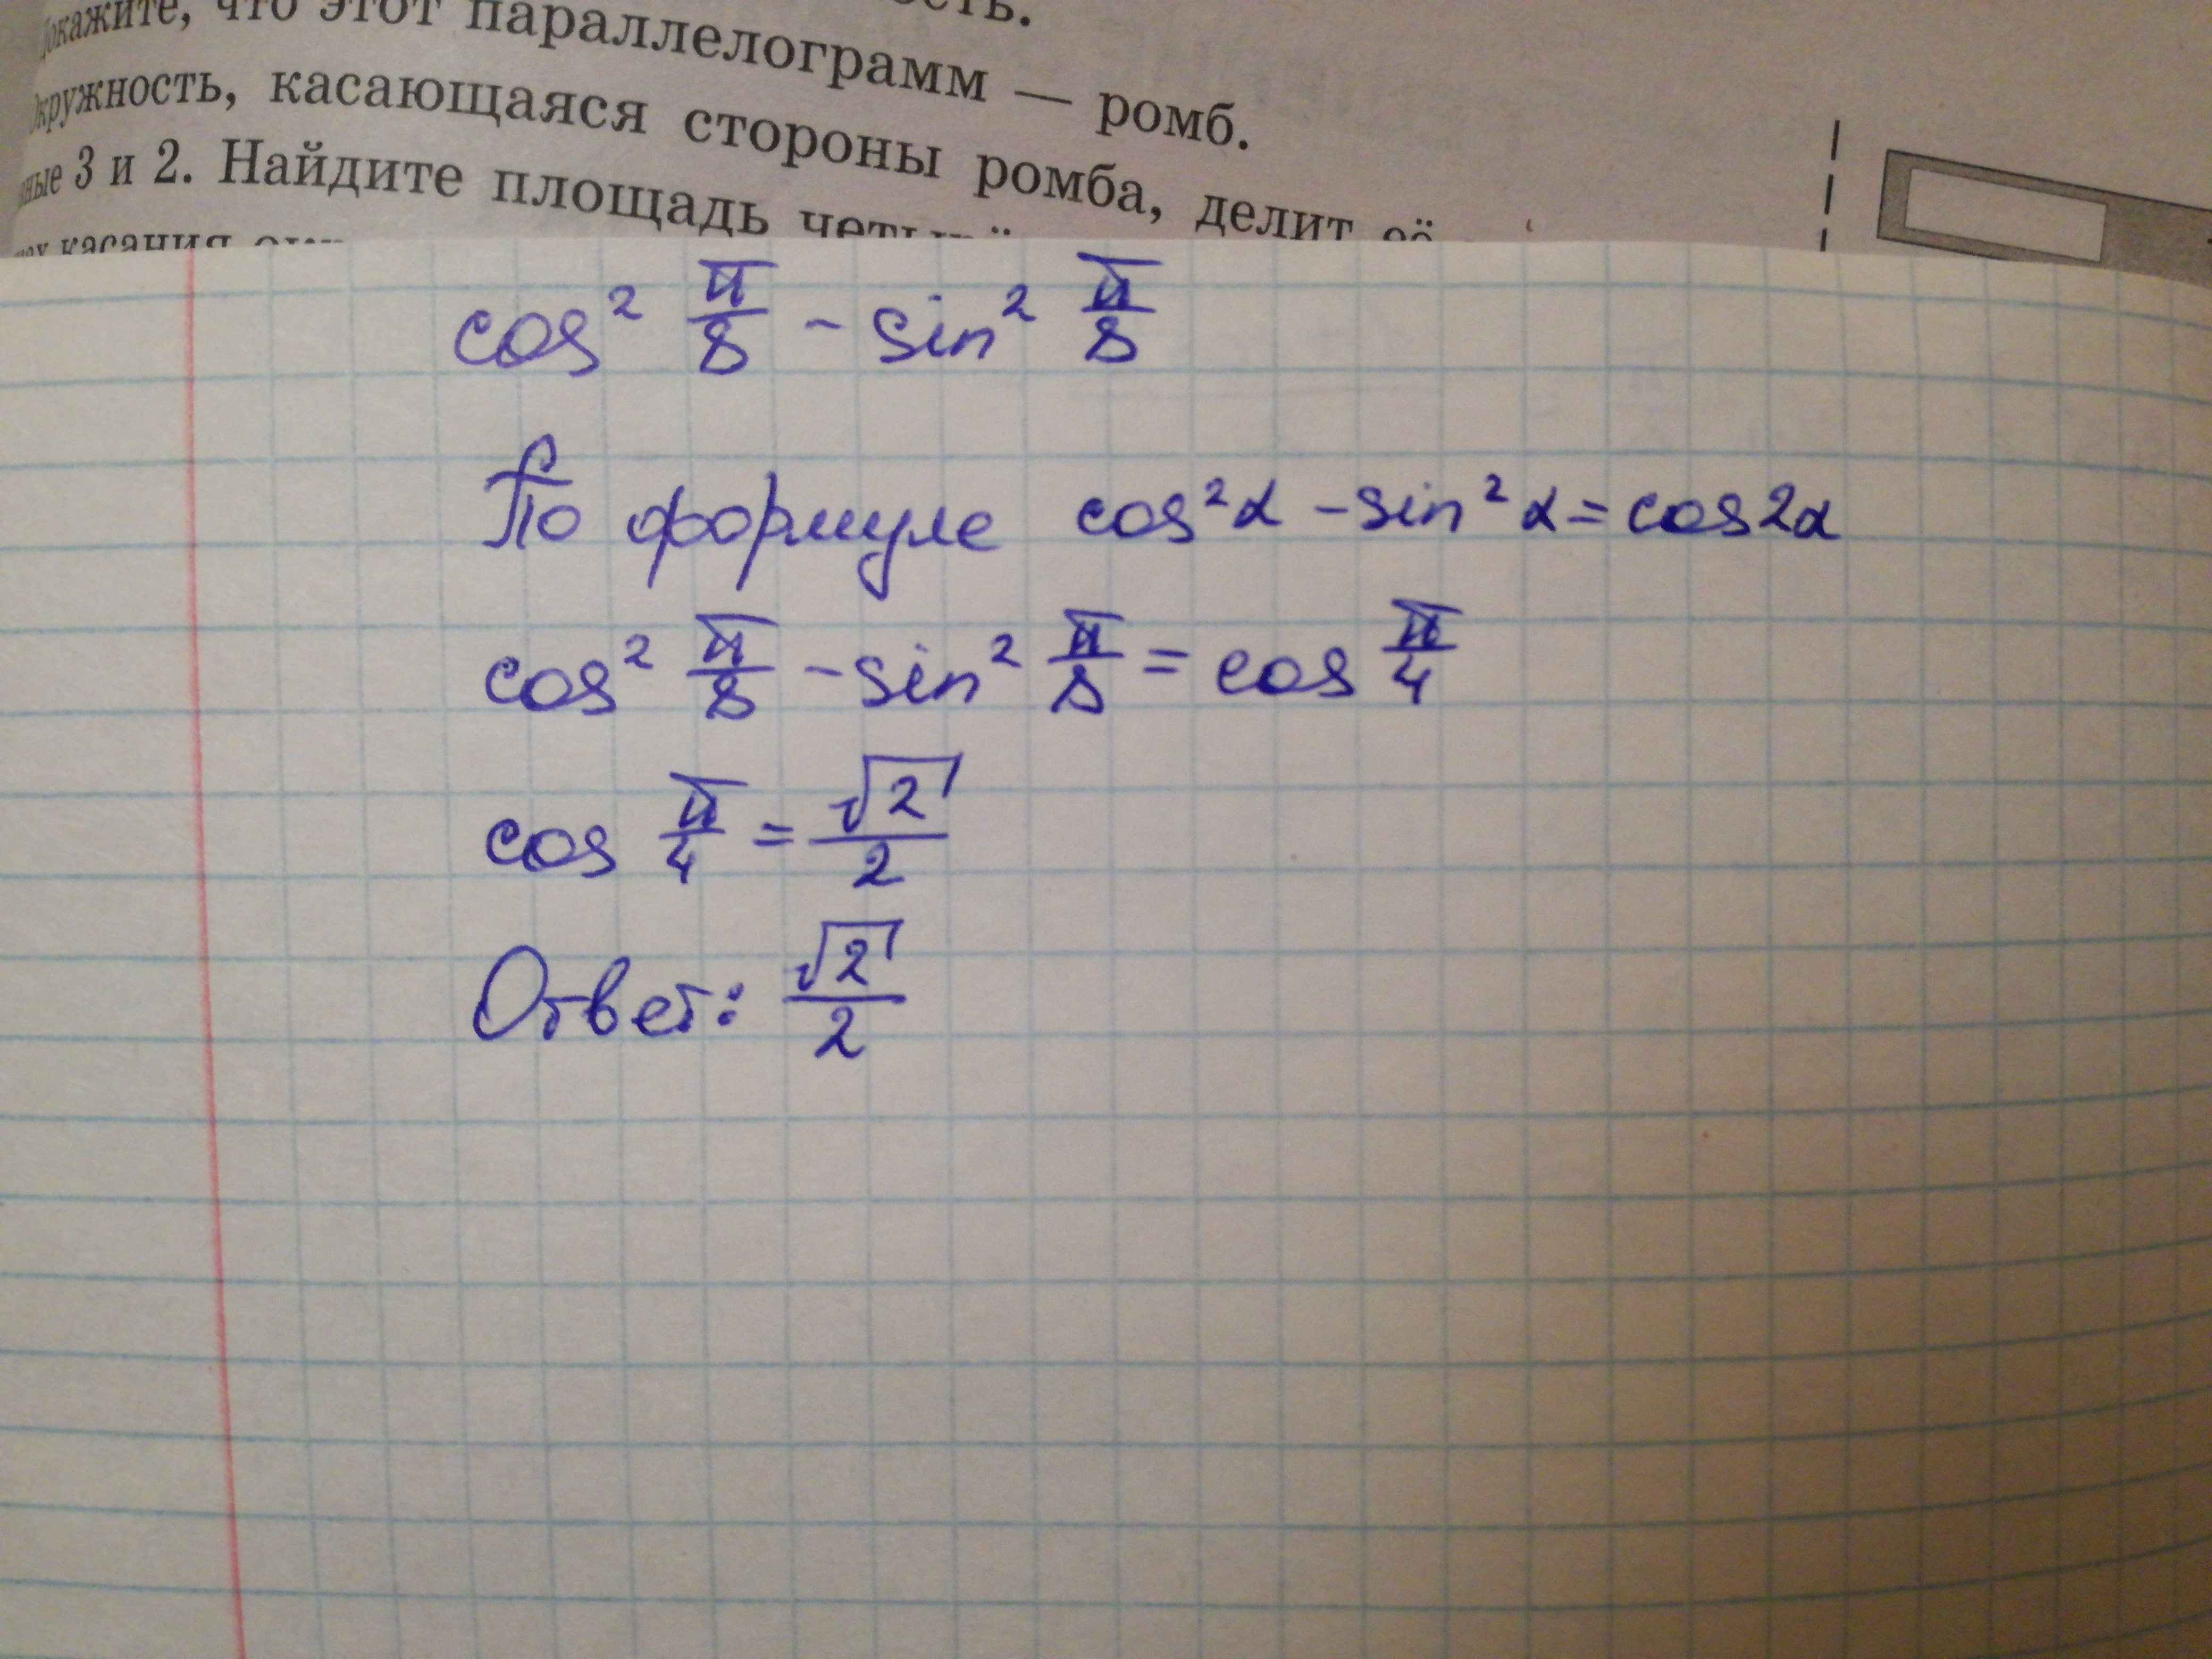 что этот параллелограмм — ромб.
касающаяся стороны ромба, делит её
3 и 2. Найдите площадь
касания
cos² π/8 - sin² π/8
По формуле cos²α - sin²α = cos2α
cos² π/8 - sin² π/8 = cos π/4
cos π/4 = √2/2
Ответ: √2/2